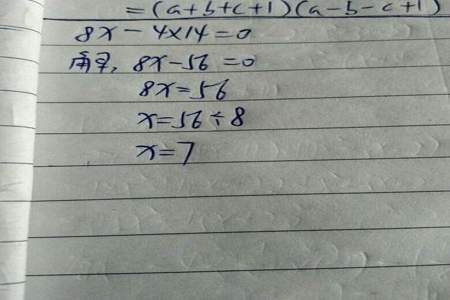 =(a+b+c+1)(a-b-c+1)
8x-4x14=0
解, 8x-56=0
8x=56
x=56÷8
x=7